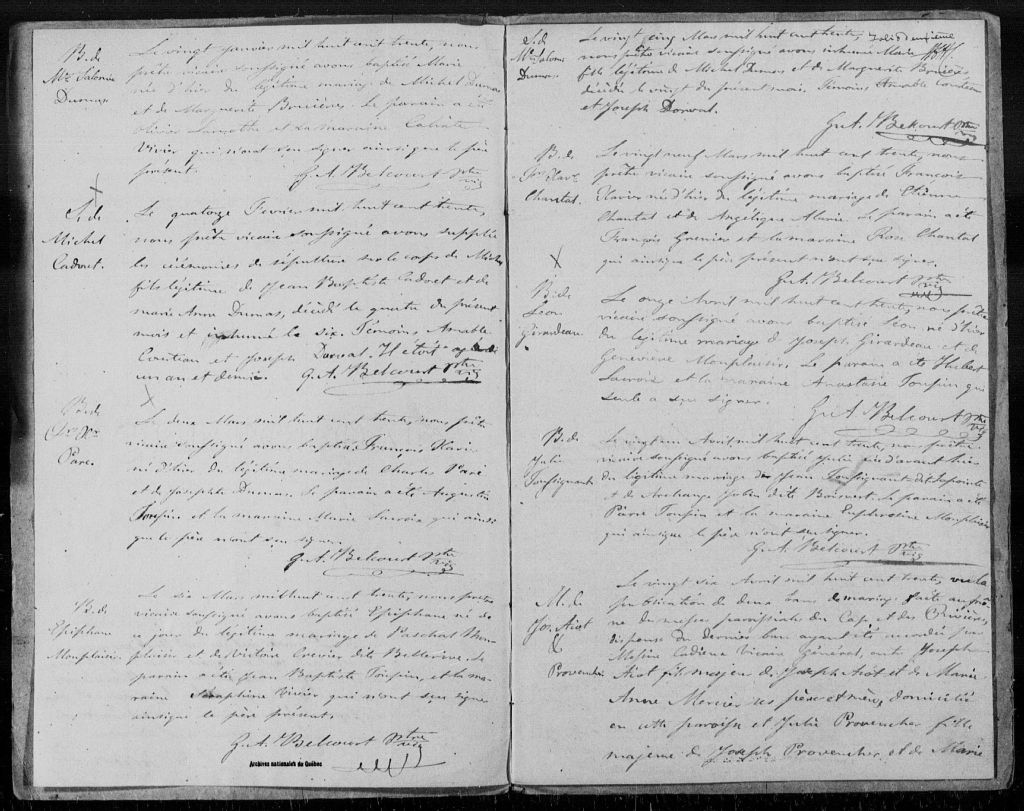 B. de
Mie Salomée
Dumas.
Le vingt janvier mil huit cent trente, nous
prêtre vicaire soussigné avons baptisé Marie
née d'hier du légitime mariage de Michel Dumas
et de Marguerite Brussières. Le parain a été
Olivier Lamothe et la maraine Calixte
Vivier qui n'ont su signer ainsi que le père
présent.
G. A. Belcourt Ptre
Vic
S. de
Michel
Cadoret.
Le quatorze Fevrier mil huit cent trente,
nous prêtre vicaire soussigné avons suppléé
les cérémonies de sépulture sur le corps de Michel
fils légitime de Jean Baptiste Cadoret et de
Marie Anne Dumas, décédé le quatre du présent
mois et inhumé le six. Témoins Amable
et Joseph Dorval. Il étoit agé de
un an et demie.
G. A. Belcourt Ptre
Vic
B. de
Frs Xer
Paré.
Le deux Mars mil huit cent trente, nous prêtre
vicaire soussigné avons baptisé François Xavier
né d'hier du légitime mariage de Charle Paré
et de Josephte Dumas. Le parain a été Augustin
Toupin et la maraine Marie Lacroix qui ainsi
que le père n'ont su signer.
G. A. Belcourt Ptre
Vic
B. de
Epiphane
Monplaisir
Le six Mars mil huit cent trente, nous prêtre
vicaire soussigné avons baptisé Epiphane né de
ce jour du légitime mariage de Paschal Mon
plaisir et de Victoire Couvier dit Bellerive. Le
parain a été Jean Baptiste Toupin, et la ma
raine Seraphine Vivier qui n'ont su signer
ainsi que le père présent.
G. A. Belcourt Ptre
Vic
Archives nationales du Québec
S. de
Mie Salomée
Dumas.
Le vingt cinq Mars mil huit cent trente, Folio deuxième
nous prêtre vicaire soussigné avons inhumé Marie
fille légitime de Michel Dumas et de Marguerite Brussières
décédée le vingt du présent mois. Témoins Amable
et Joseph Dorval.
G. A. Belcourt Ptre
Vic
B. de
Frs Xavr
Chantal.
Le vingt neuf Mars mil huit cent trente, nous
prêtre vicaire soussigné avons baptisé François
Xavier né d'hier du légitime mariage de Etienne
Chantal et de Angélique Marie. Le parain a été
François Grenier et la maraine Rose Chantal
qui ainsi que le père présent n'ont su signer.
G. A. Belcourt Ptre
Vic
B. de
Léon
Girardeau.
Le onze Avril mil huit cent trente, nous prêtre
vicaire soussigné avons baptisé Léon né d'hier
du légitime mariage de Joseph Girardeau et de
Geneviève Monplaisir. Le parain a été Hubert
Lacroix et la maraine Anastasie Toupin qui
seule a su signer.
G. A. Belcourt Ptre
Vic
B. de
Julie
Tousignant
Le vingt un Avril mil huit cent trente, nous prêtre
vicaire soussigné avons baptisé Julie née d'avant hier
du légitime mariage de Jean Tousignant dit Lapointe
et de Archange Jolin dite Boisvert. Le parain a été
Pierre Toupin et la maraine Euphrosine Monplaisir
qui ainsi que le père n'ont su signer.
G. A. Belcourt Ptre
Vic
M. de
Jos. Aiot
&
Provencher
Le vingt six Avril mil huit cent trente, vu la
publication de deux bans de mariage faite au prô
ne de messes paroissiales du Cap et des 3 Rivières,
dispense du dernier ban ayant été accordée par
Messire Cadieux Vicaire Général, entre Joseph
Aiot fils majeur de Joseph Aiot et de Marie
Anne Mercier ses père et mère, domicilié
en cette paroisse et Julie Provencher fille
majeure de Joseph Provencher et de Marie